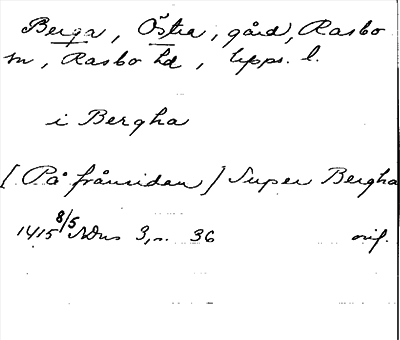 Berga, Östra, gård, Rasbo
sn, Rasbo hd, Upps. l.
i Bergha
[På frånsidan] Super Bergha
1415 8/5 SDns 3, s. 36 orig.